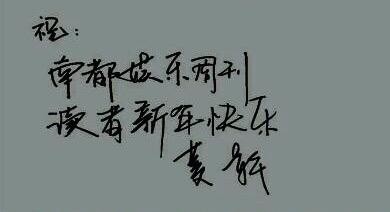 祝：
南都娱乐周刊
读者新年快乐